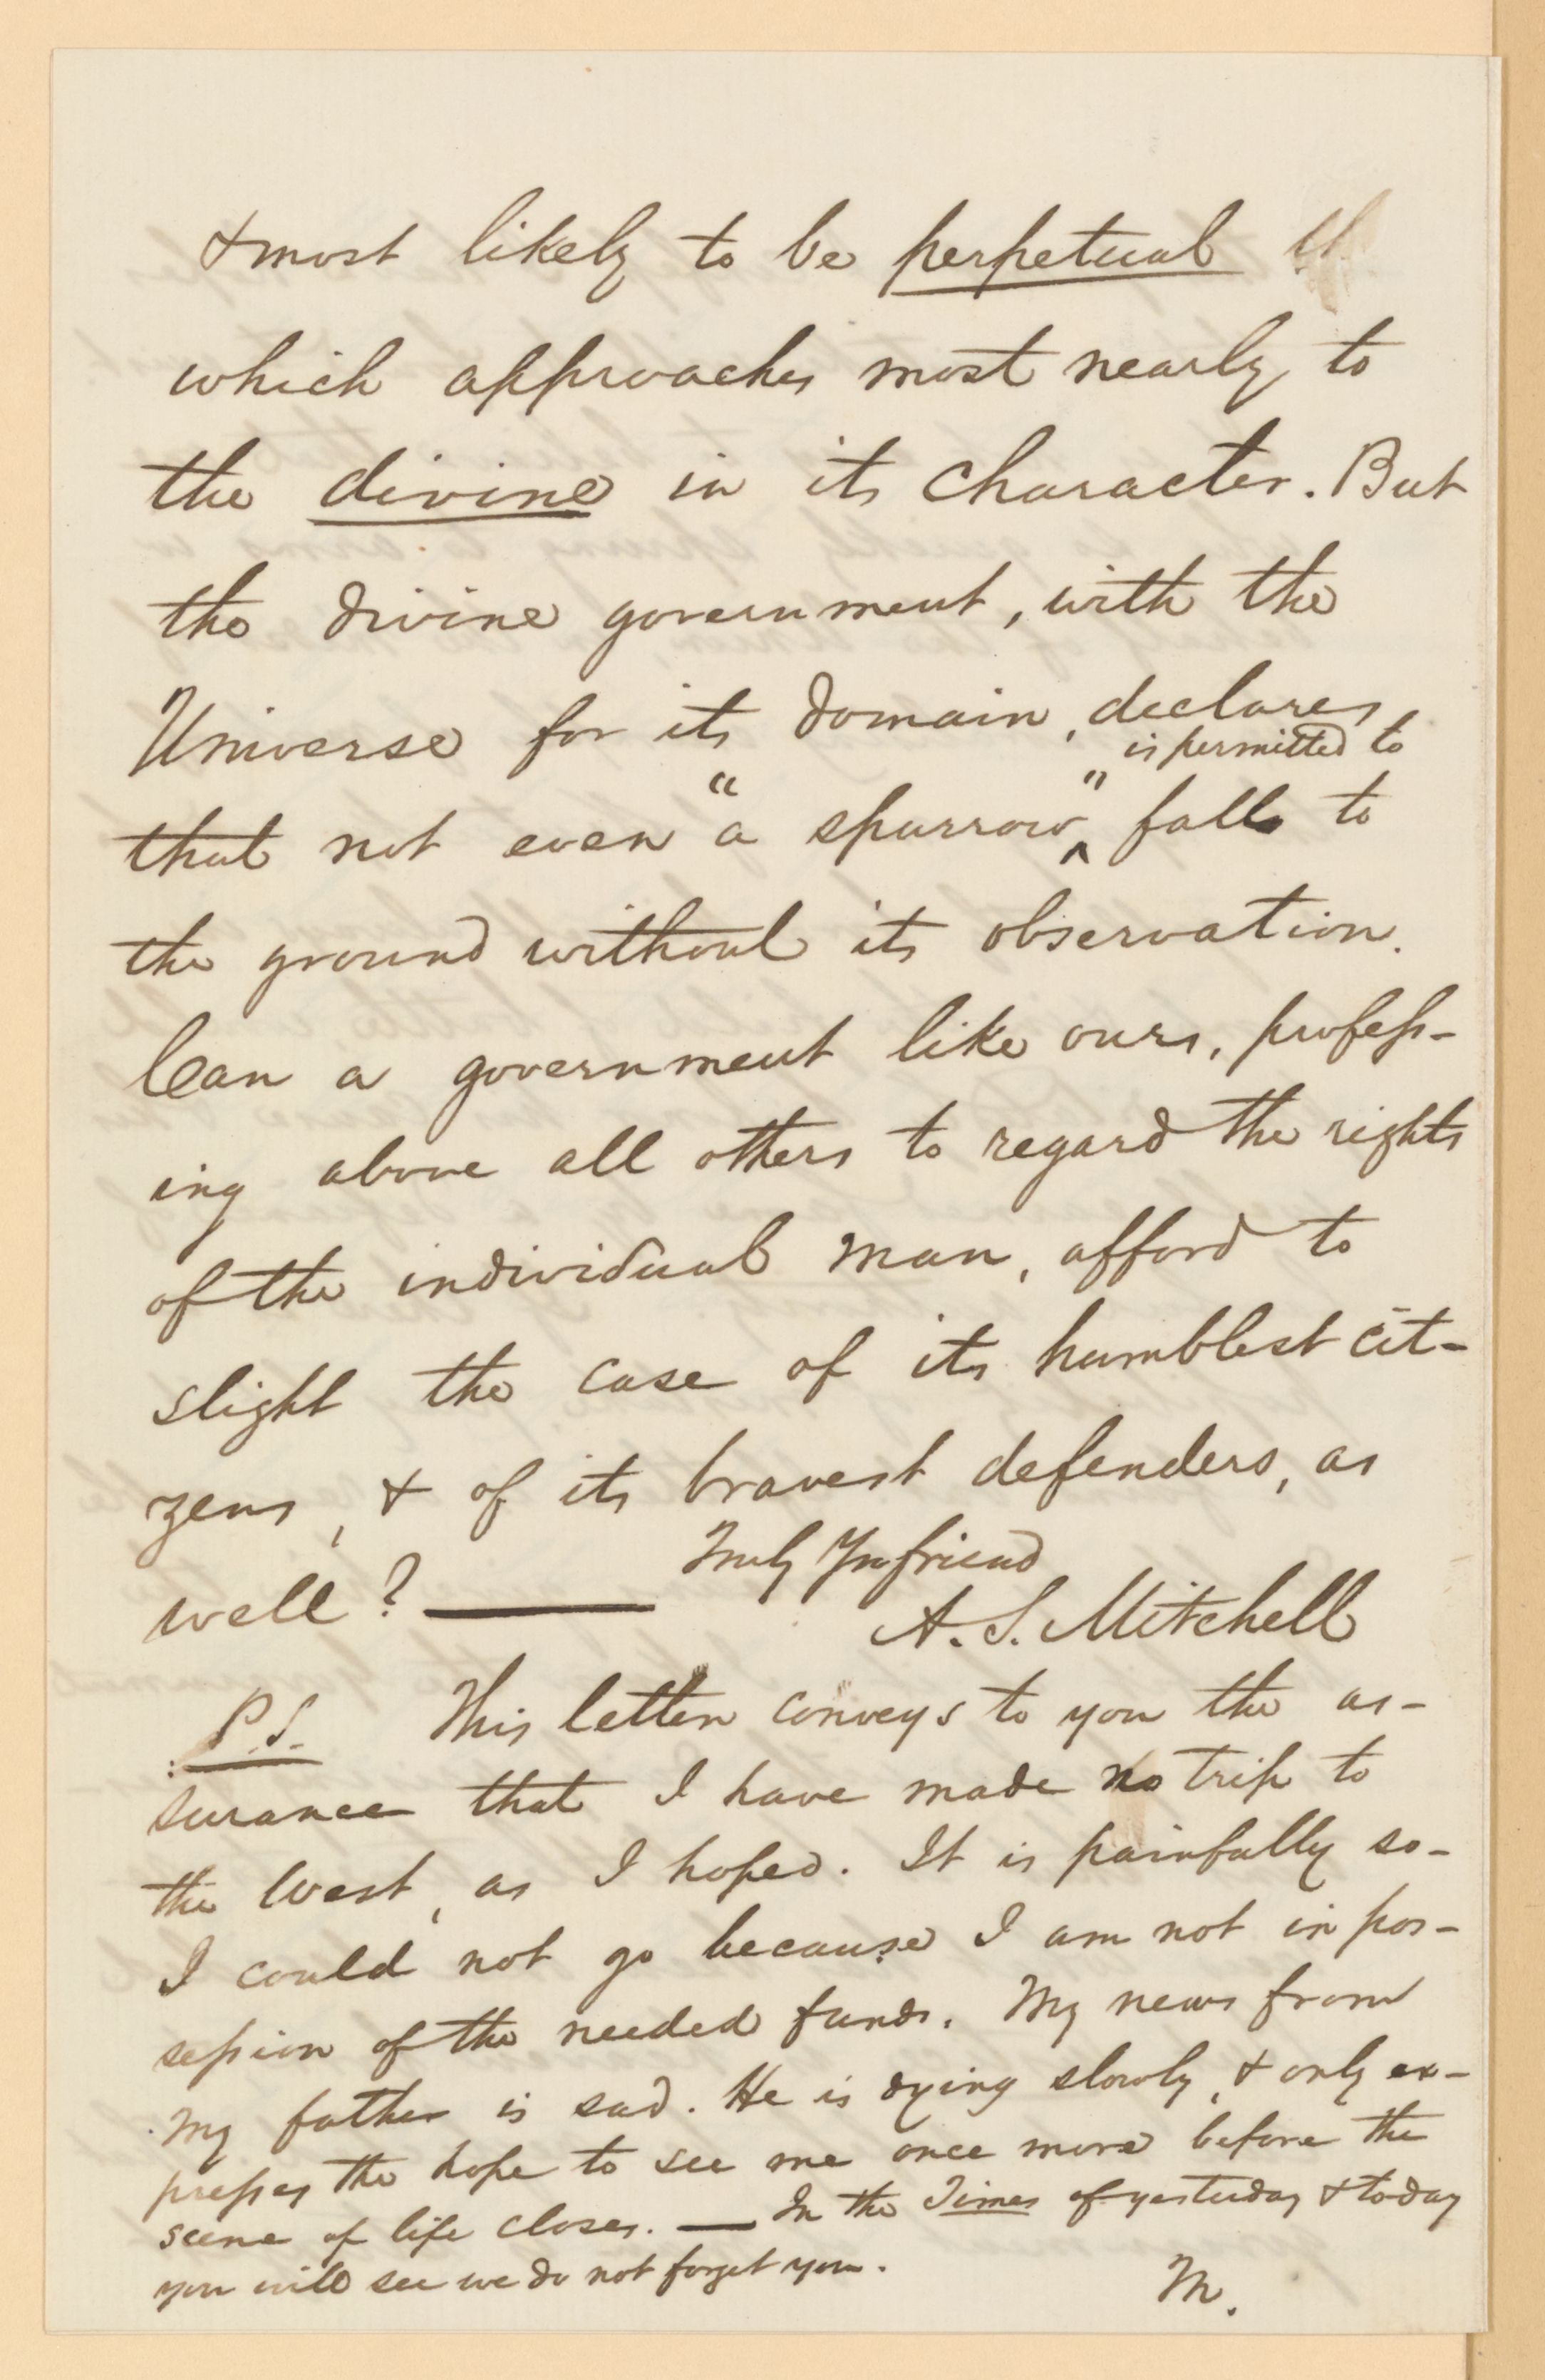 & most likely to be perpetual
which approaches most nearly to
the divine in its character. But
the divine government, with the
Universe for its domain, declares
is permitted to
that not even "a sparrow" fall to
the ground without its observation.
Can a government like ours, profess-
ing above all others to regard the rights
of the individual man, afford to
slight the case of its humblest cit-
zens, & of its bravest defenders, as
well? —
Truly Yr friend
A. S. Mitchell
P.S. This letter conveys to you the as-
surance that I have made no trip to
the West, as I hoped. It is painfully so-
I could not go because I am not in pos-
session of the needed funds. My news from
my father is sad. He is dying slowly, & only ex-
presses the hope to see me once more before the
scene of life closes. — In the Times of yesterday & to-day
you will see we do not forget you.
M.